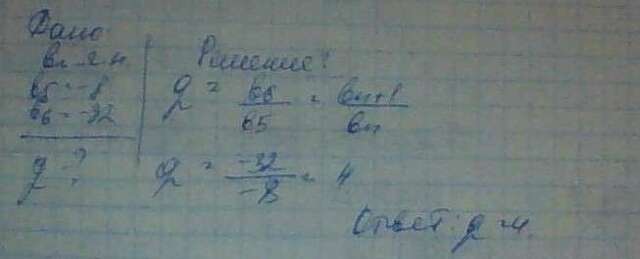 Дано
bn г.п
b5 = -8
b6 = -32
q - ?
Решение:
q = b6/b5 = bn+1/bn
q = -32/-8 = 4
Ответ: q = 4.